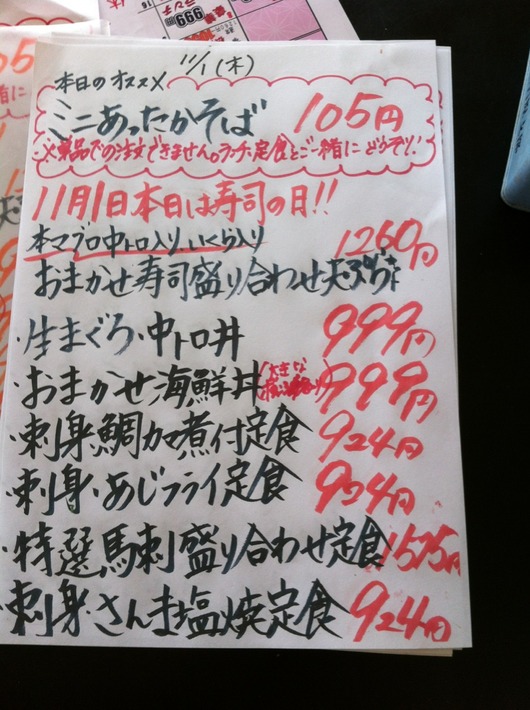 11/1(木)
本日のオススメ
ミニあったかそば 105円
※単品での注文できません。ランチ定食とご一緒にどうぞ!
11月1日本日は寿司の日!!
本マグロ中トロ入りいくら入り 1260円
おまかせ寿司盛り合わせ天ぷら付
・生まぐろ・中トロ丼 999円
・おまかせ海鮮丼 999円
・刺身・鯛カマ煮付定食 924円
・刺身・あじフライ定食 924円
・特選馬刺盛り合わせ定食 1575円
・刺身・さんま塩焼定食 924円
999